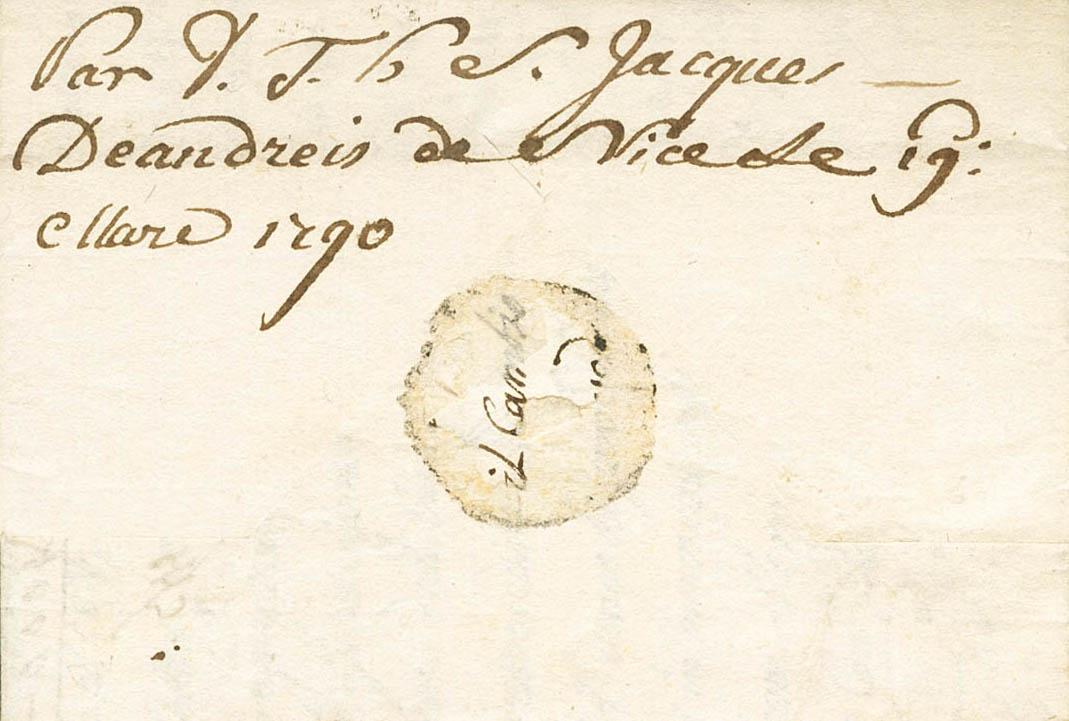 Par J. T. b e S. Jacques
Deandreis de Nice Le 19:
Mare 1790
il Can